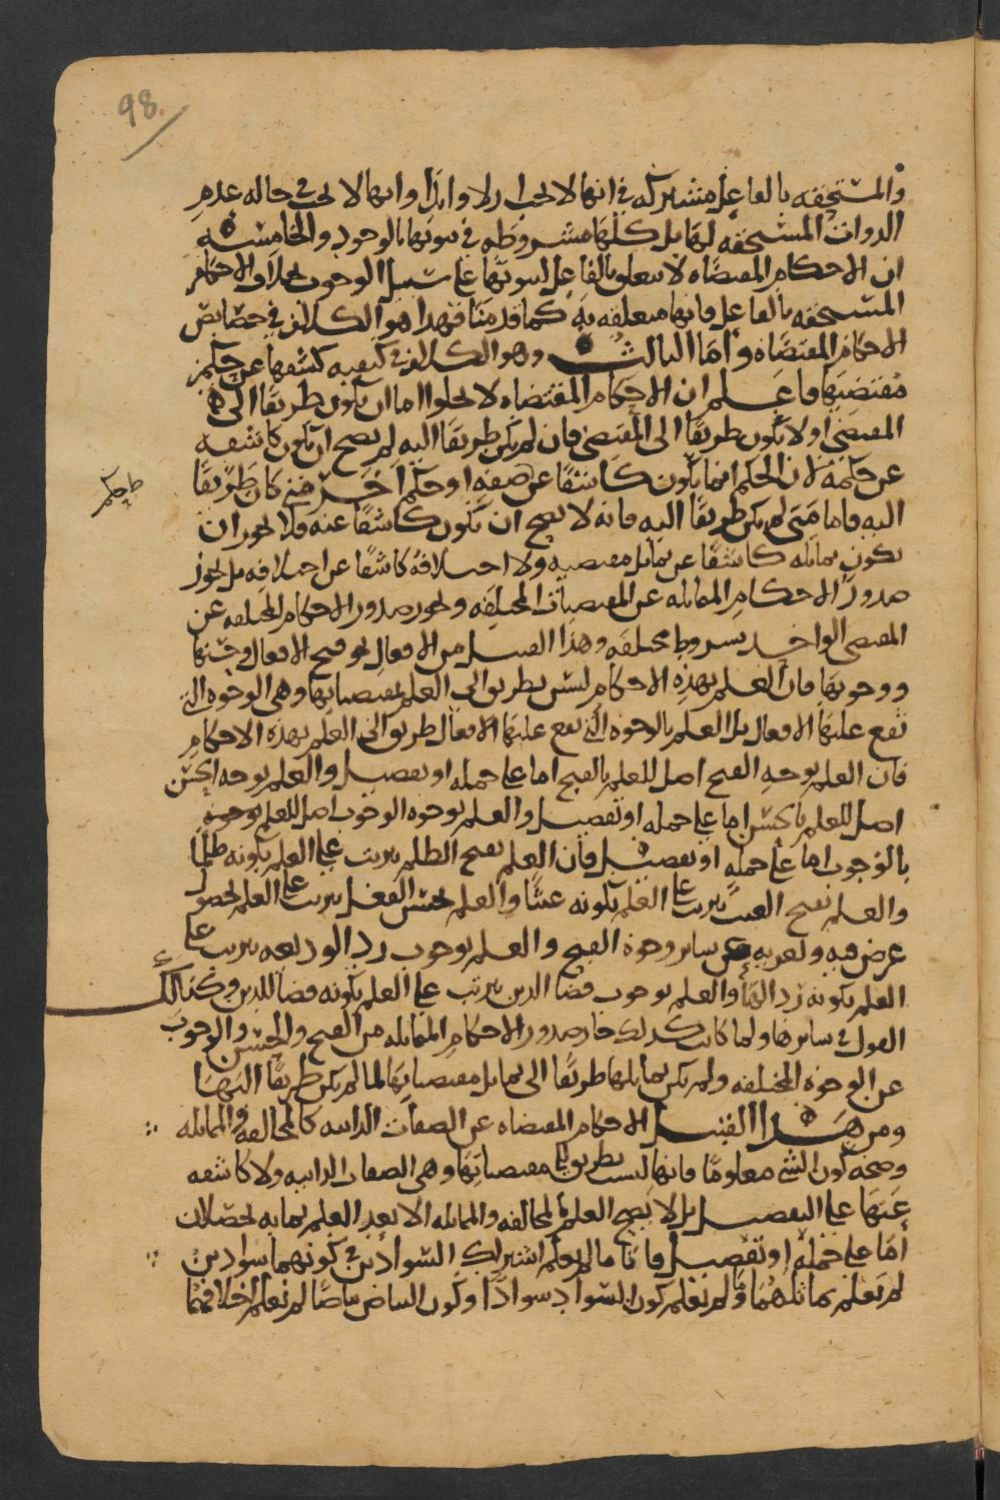 98
والمستحقه بالفاعل مشتركه في انها لا تجب ازلا وابدا وانها لا تجب في حاله عدم
الذوات المستحقه لها بل كلها مشروطه في ثبوتها بالوجود والخامسه
ان الاحكام المقتضاه لا تتعلق بالفاعل لثبوتها على سبيل الوجوب بخلاف الاحكام
المستحقه بالفاعل فانها متعلقه به كما قدمنا فهذا هو الكلام في خصايص
الاحكام المقتضاه واما الثالث وهو الكلام في كيفيه كشفها عن حكم
مقتضيها فاعلم ان الاحكام المقتضاه لا تخلوا اما ان تكون طريقا الى
المقتضي او لا تكون طريقا الى المقتضي فان لم تكن طريقا اليه لم يصح ان تكون كاشفه
عن حكمه لان الحكم انما يكون كاشفا عن صفه او حكم اخر متى كان طريقا
ط حكم
اليه فاما متى لم يكن طريقا اليه فانه لا يصح ان يكون كاشفا عنه فلا يجوز ان
يكون تماثله كاشفا عن تماثل مقتضيه ولا اختلافه كاشفا عن اختلافه بل يجوز
صدور الاحكام المماثله عن المقتضيات المختلفه ويجوز صدور الاحكام المختلفه عن
المقتضي الواحد بشروط مختلفه وهذا القبيل من الافعال نحو قبح الافعال وحسنها
ووجوبها فان العلم بهذه الاحكام ليس بطريق الى العلم بمقتضياتها وهي الوجوه التي
تقع عليها الافعال بل العلم بالوجوه التي تقع عليها الافعال طريق الى العلم بهذه الاحكام
فان العلم بوجه القبح اصل للعلم بالقبح اما على جمله او تفصيل والعلم بوجه الحسن
اصل للعلم بالحسن اما على جمله او تفصيل والعلم بوجوه الوجوب اصل للعلم
بالوجوب اما على جمله او تفصيل فان العلم بقبح الظلم يترتب على العلم بكونه ظلما
والعلم بقبح العبث يترتب على العلم بكونه عبثا والعلم بحسن الفعل يترتب على العلم بحصول
غرض فيه وتعريه عن ساير وجوه القبح والعلم بوجوب رد الوديعه يترتب على
العلم بكونه ردا لها والعلم بوجوب قضا الدين يترتب على العلم بكونه قضا للدين وكذلك
القول في سايرها ولما كانت كذلك جاز صدور الاحكام المماثله من القبح والحسن والوجوب
عن الوجوه المختلفه ولم يكن تماثلها طريقا الى تماثل مقتضياتها لما لم يكن طريقا اليها
ومن هذا القبيل الاحكام المقتضاه عن الصفات الذاتيه كالمخالفه والمماثله
وصحه كون الشي معلوما فانها ليست بطريق الى مقتضياتها وهي الصفات الذاتيه ولا كاشفه
عنها على التفصيل بل لا يصح العلم بالمخالفه والمماثله الا بعد العلم بما به تحصلان
اما على جمله او تفصيل فانا ما لم نعلم اشتراك السوادين في كونهما سوادين
لم نعلم تماثلهما وما لم نعلم كون السواد سوادا وكون البياض بياضا لم نعلم اختلافهما